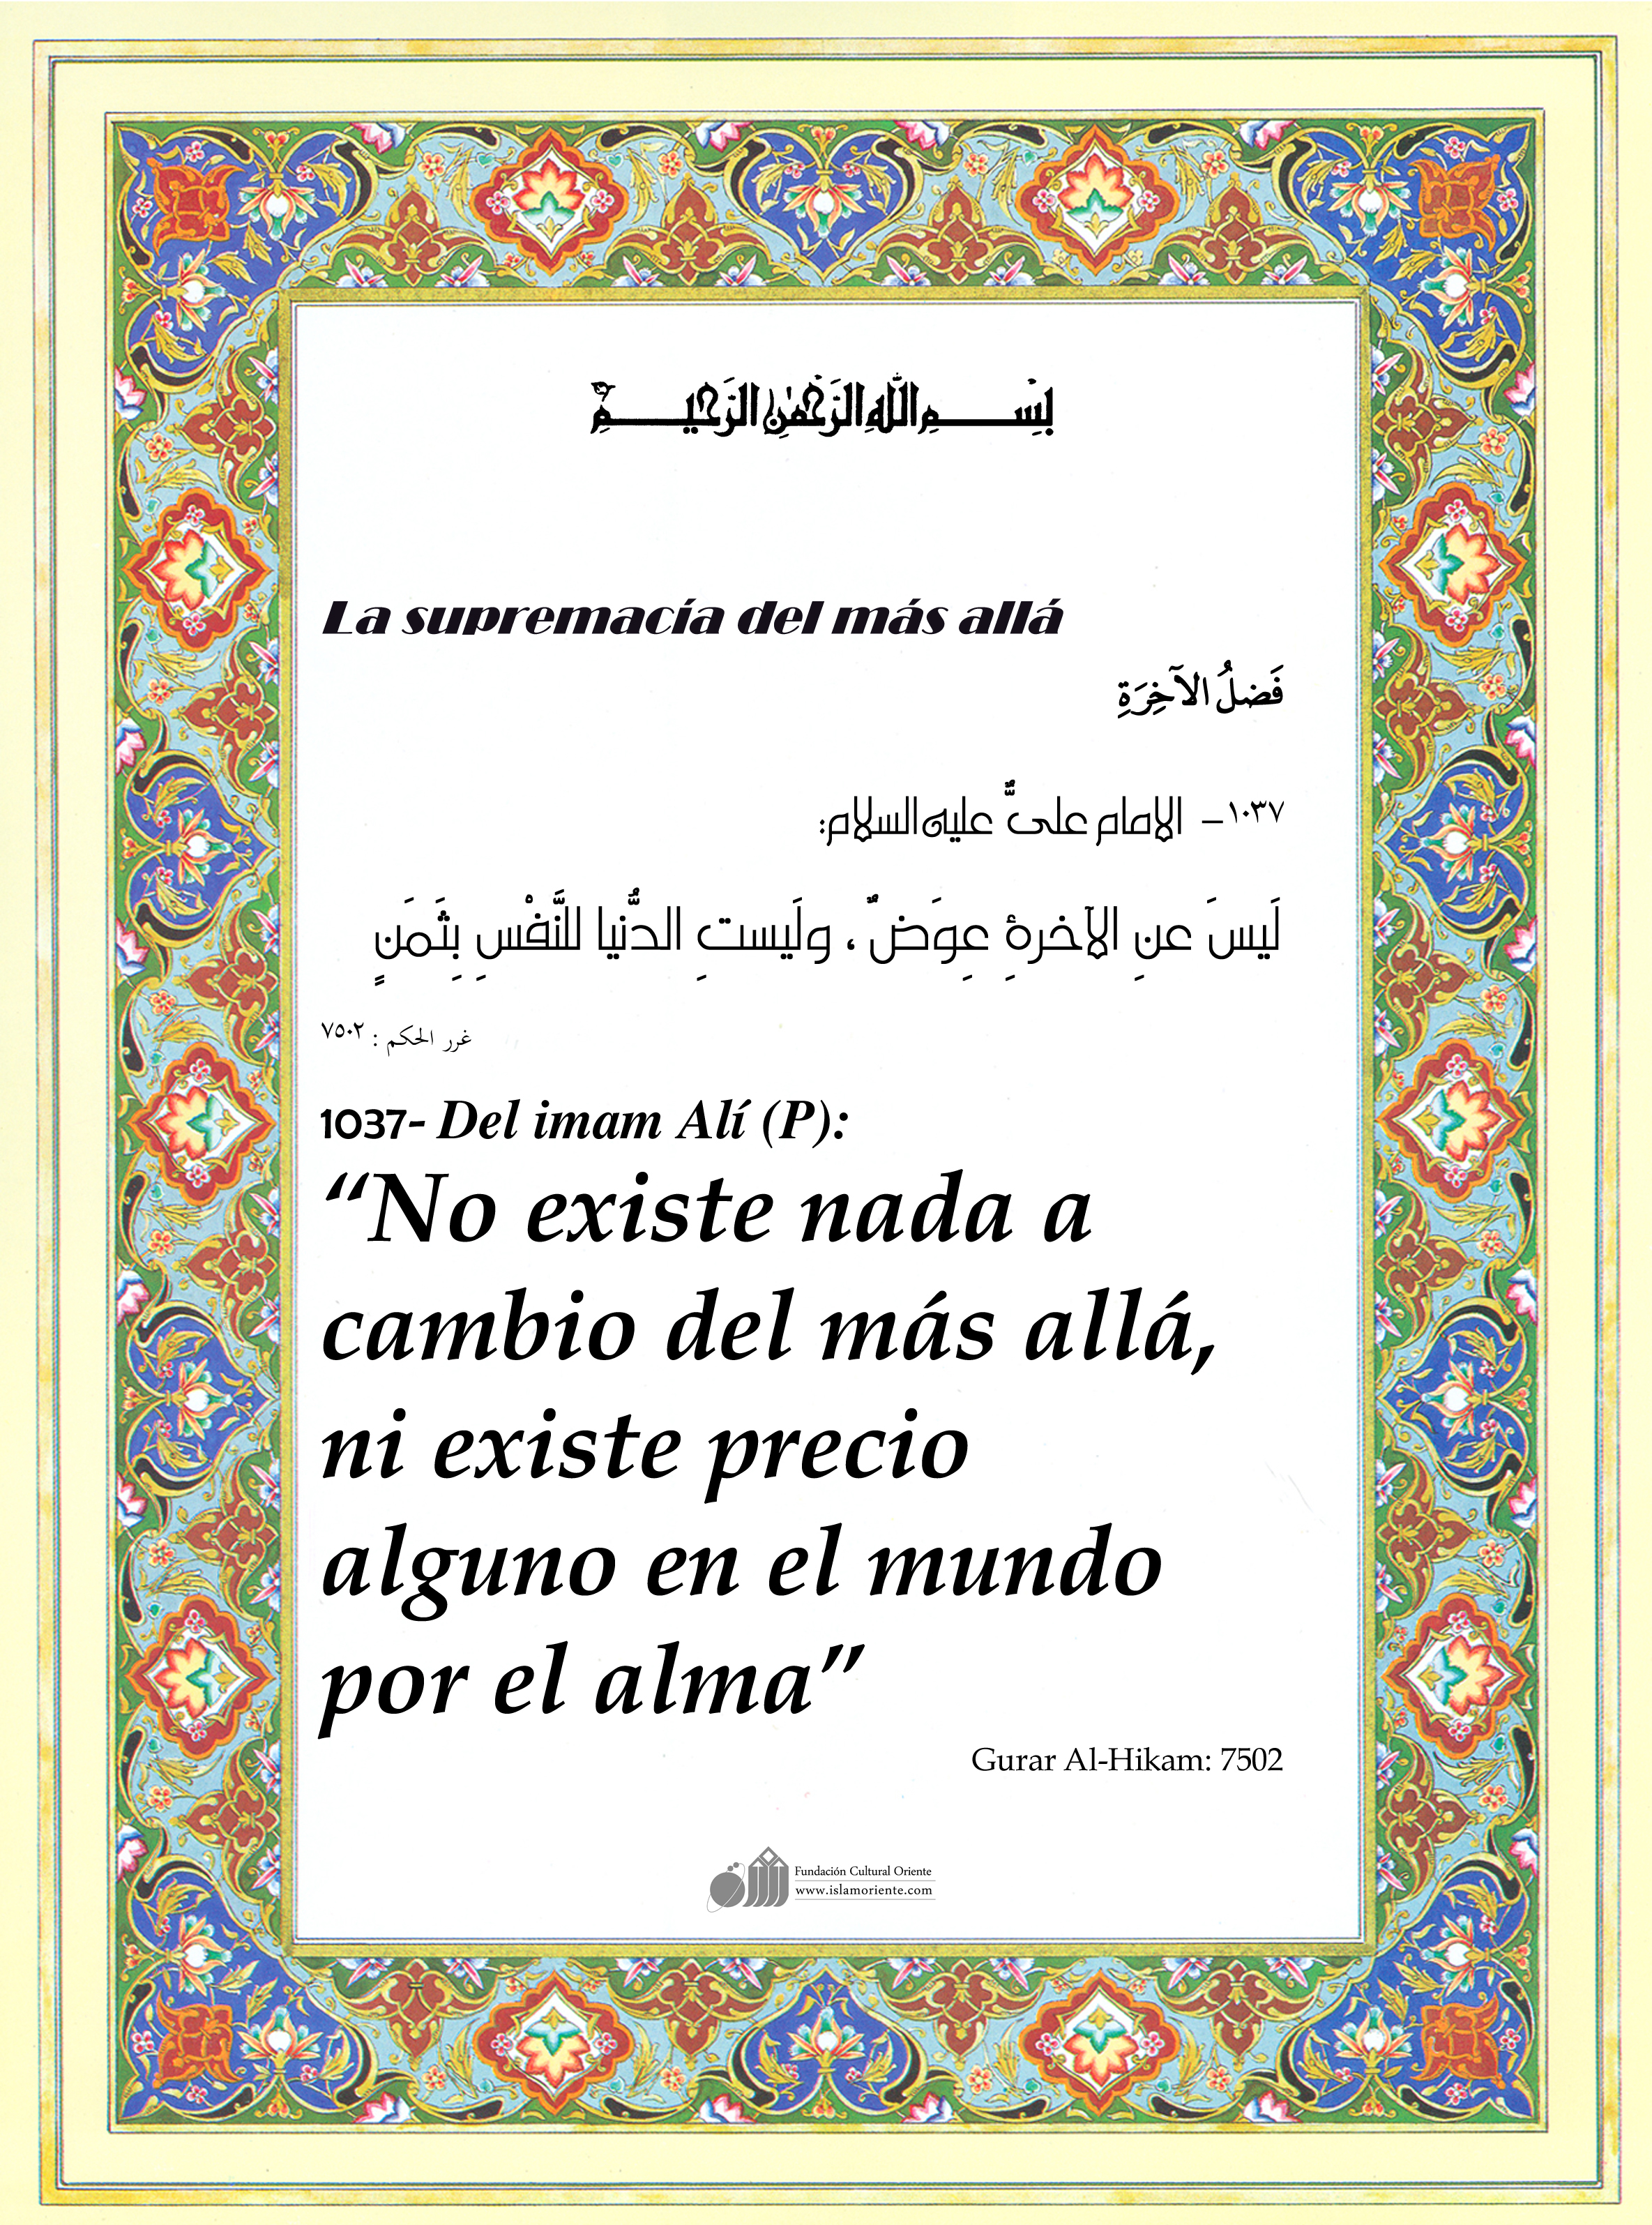 بِسْمِ اللهِ الرَّحْمٰنِ الرَّحيمِ
La supremacía del más allá
فَضلُ الآخِرَةِ
١٠٣٧– الامام علىٌّ عليه السلام:
لَيسَ عنِ الآخرةِ عِوَضٌ، ولَيستِ الدُّنيا للنَّفْسِ بِثَمَنٍ
غرر الحكم : ٧٥٠٢
1037- Del imam Alí (P):
“No existe nada a
cambio del más allá,
ni existe precio
alguno en el mundo
por el alma”
Gurar Al-Hikam: 7502
Fundación Cultural Oriente
www.islamoriente.com